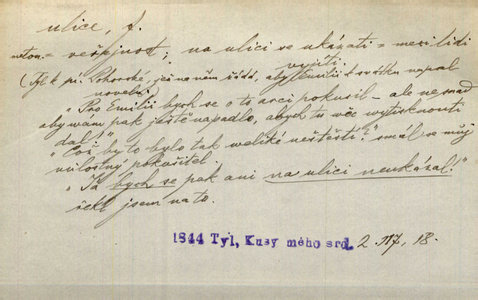 ulice, f.
meton. = veřejnost; na ulici se ukázati = mezi lidi
vyjíti.
(Tyl k př. Pohorské, jež na něm žádá, aby Emilii k svátku napsal
novelu)
"Pro Emilii bych se o to arci pokusil – ale ne snad
aby vám pak ještě napadlo, abych tu věc vytisknouti
dal!"
"Což by to bylo tak veliké neštěstí?" smál se můj
milostný pokušitel.
"Já bych se pak ani na ulici neukázal!"
řekl jsem na to.
1844 Tyl, Kusy mého srd. 2. 117, 18.